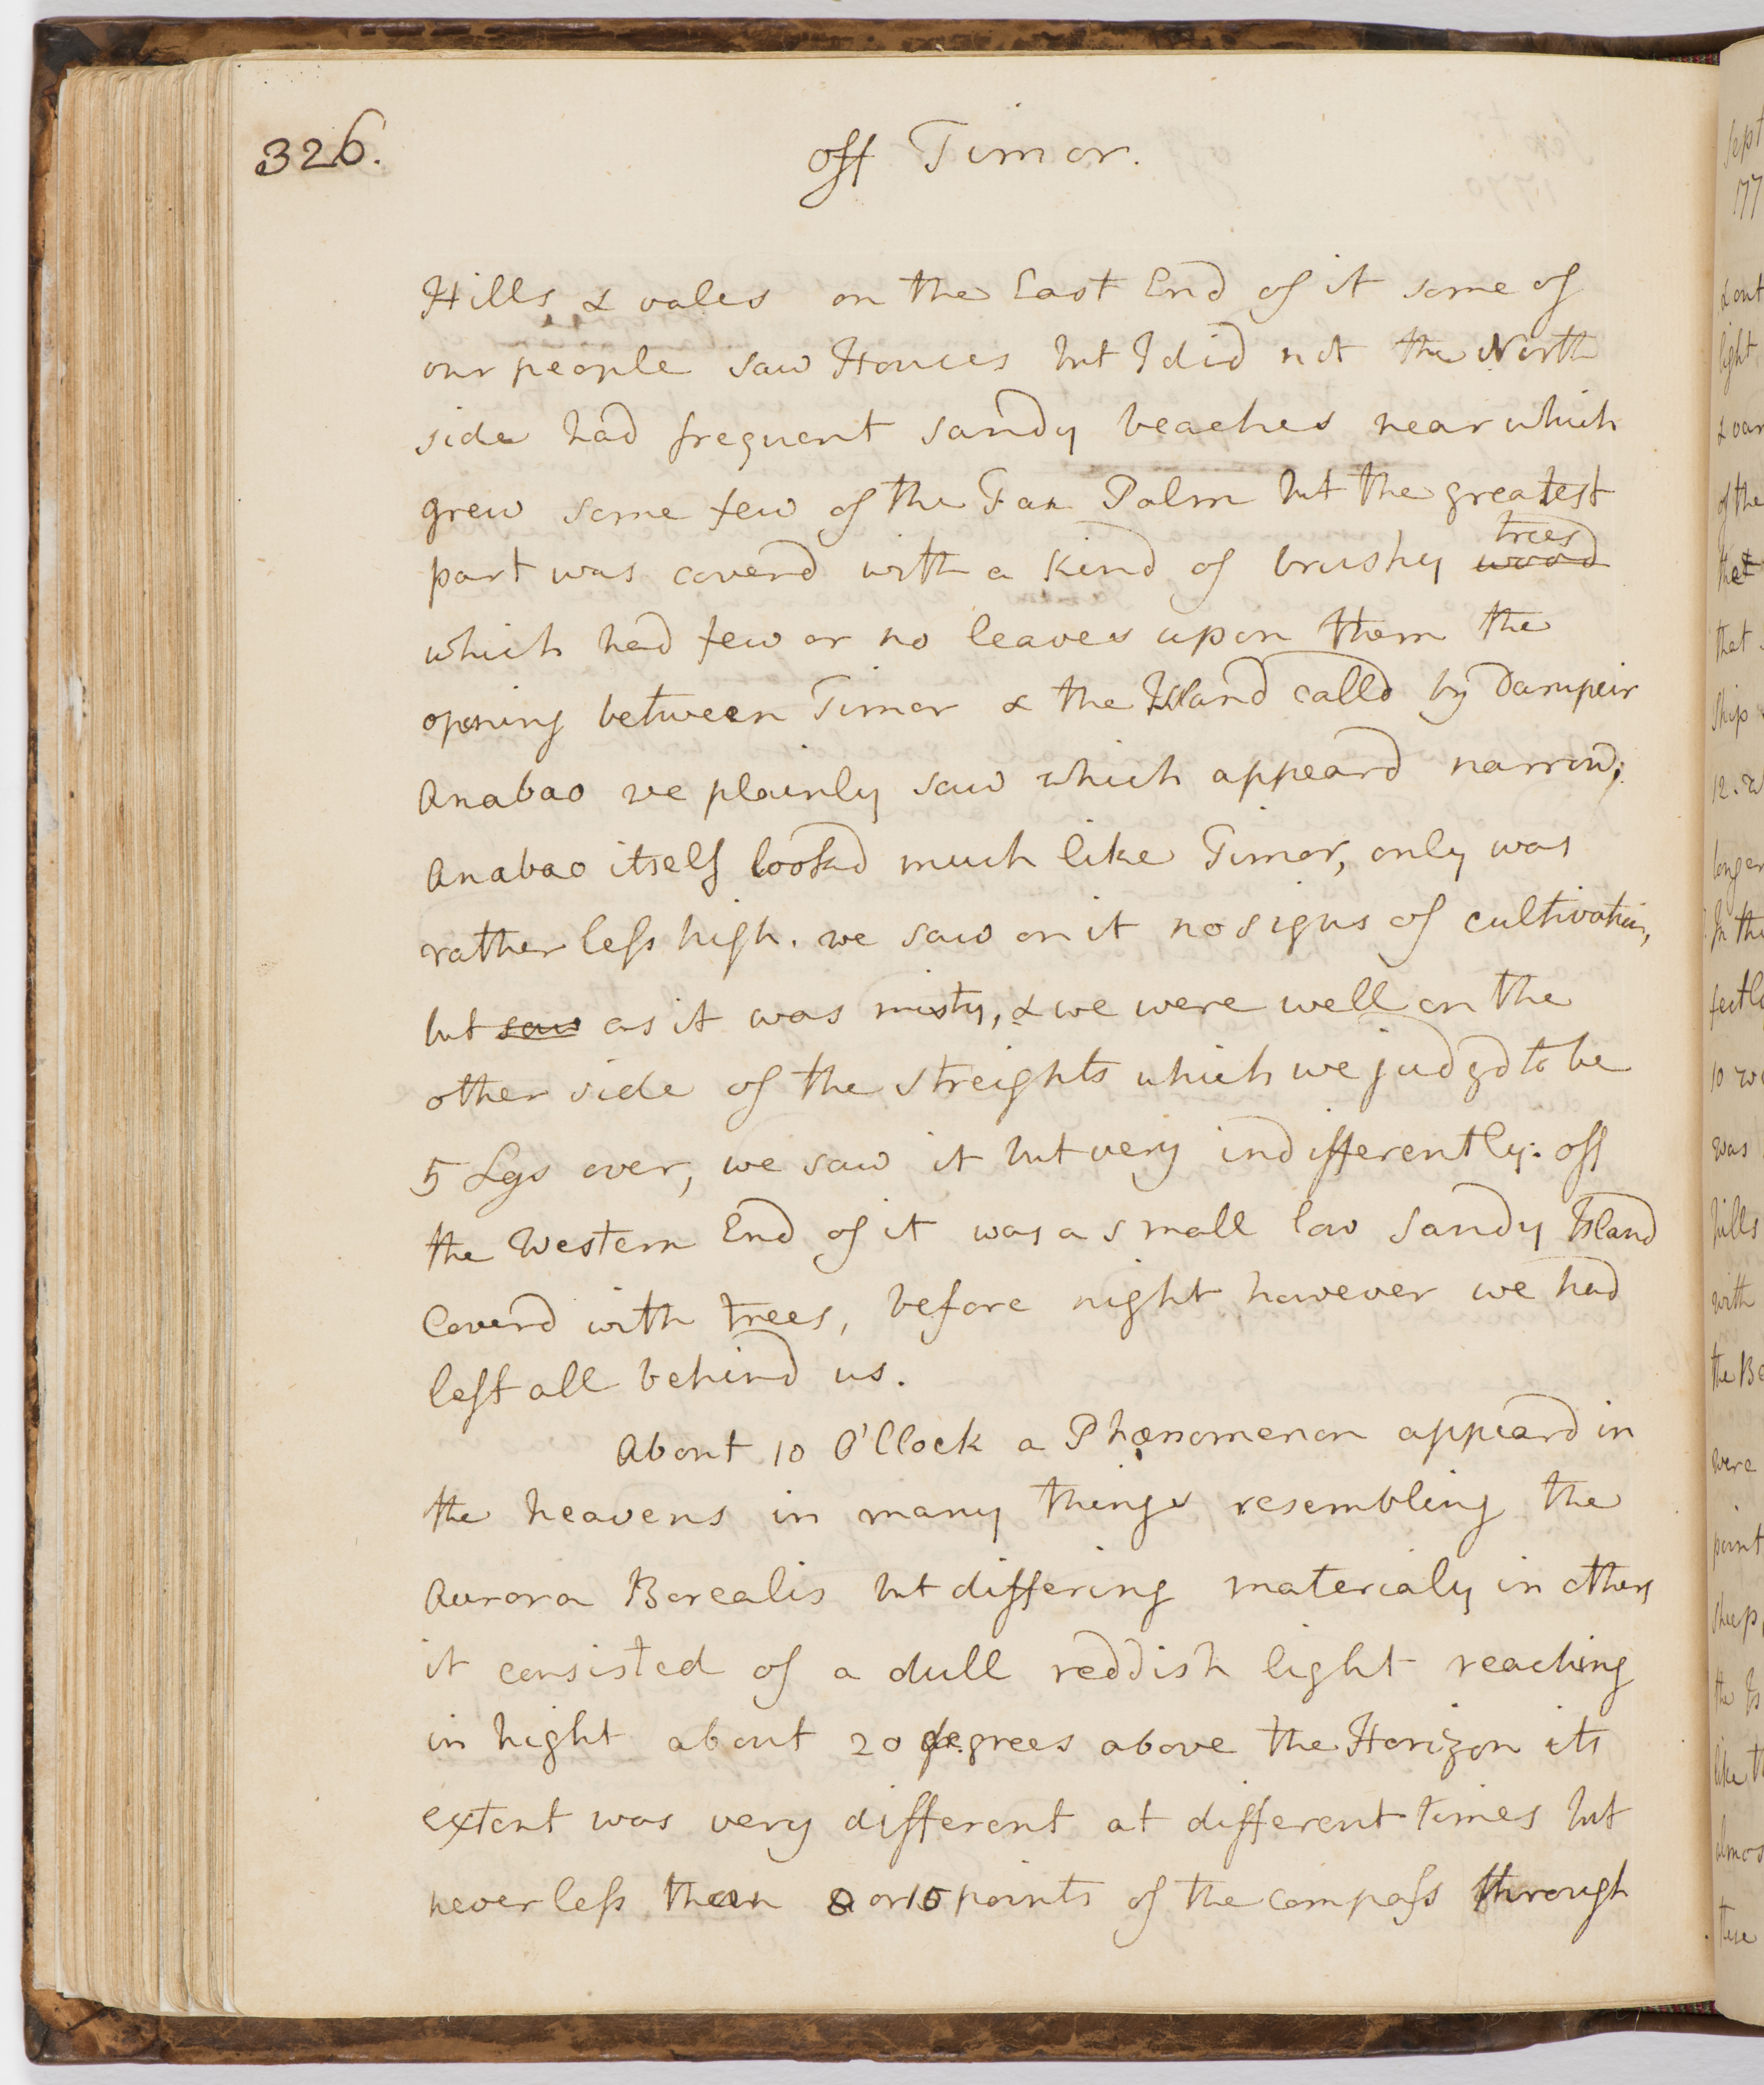 326.
off Timor.
Hills & vales on the East End of it some of
our people saw Houses but I did not the North
side had frequent sandy beaches near which
grew some few of the Fan Palm but the greatest
trees
part was coverd with a kind of brushy wood
which had few or no leaves upon them the
opening between Timor & the Island calld by Dampeir
Anabao we plainly saw which appeard narrow;
Anabao itself lookd much like Timor, only was
rather less high. we saw on it no signs of cultivation,
but saw as it was misty, & we were well on the
other side of the streights which we judgd to be
5 Lgs over, we saw it but very indifferently: off
the Western End of it was a small low sandy Island
Coverd with trees, before night however we had
left all behind us.
About 10 O'Clock a Phænomenon appeard in
the heavens in many things resembling the
Aurora Borealis but differing materialy in others
it consisted of a dull reddish light reaching
in hight about 20 degrees above the Horizon its
extent was very different at different times but
never less than 8 or 10 points of the compass through
Sept
177
& out
light
of the
that
ship
12.
longer
In the
10
was
hills
with
the Be
were
point
sheep,
the Is
like